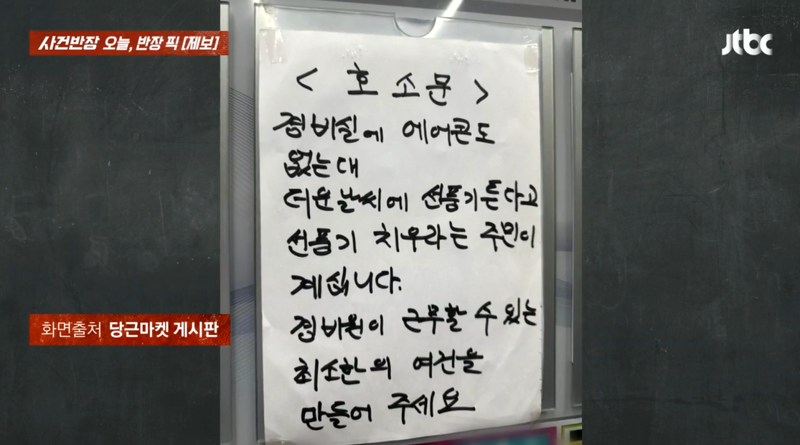 사건반장 오늘, 반장 픽 [제보]
jtbc
< 호소문 >
경비실에 에어콘도
없는대
더운날씨에 선풍기튼다고
선풍기 치우라는 주민이
계십니다.
경비원이 근무할 수 있는
최소한의 여건을
만들어 주세요
화면출처 당근마켓 게시판